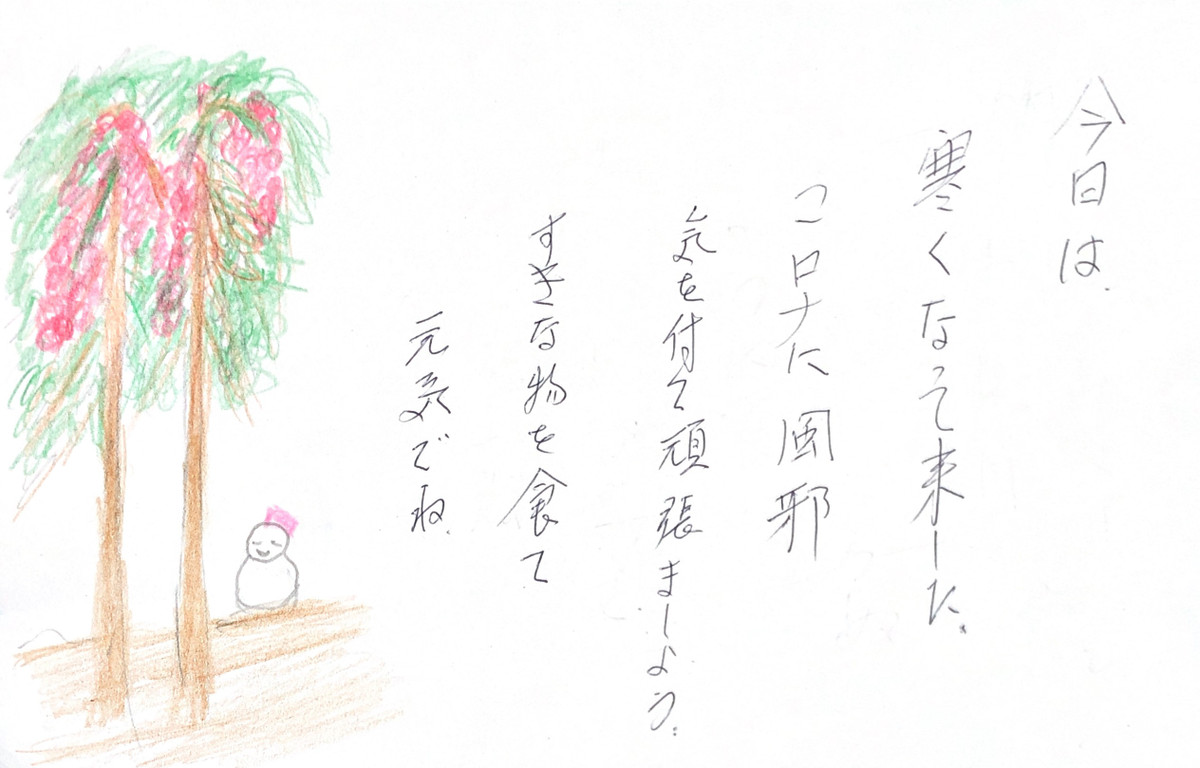 今日は、
寒くなって来ーた。
コロナに風邪
気を付て頑張ましょう。
すきな物を食て
元気でね、